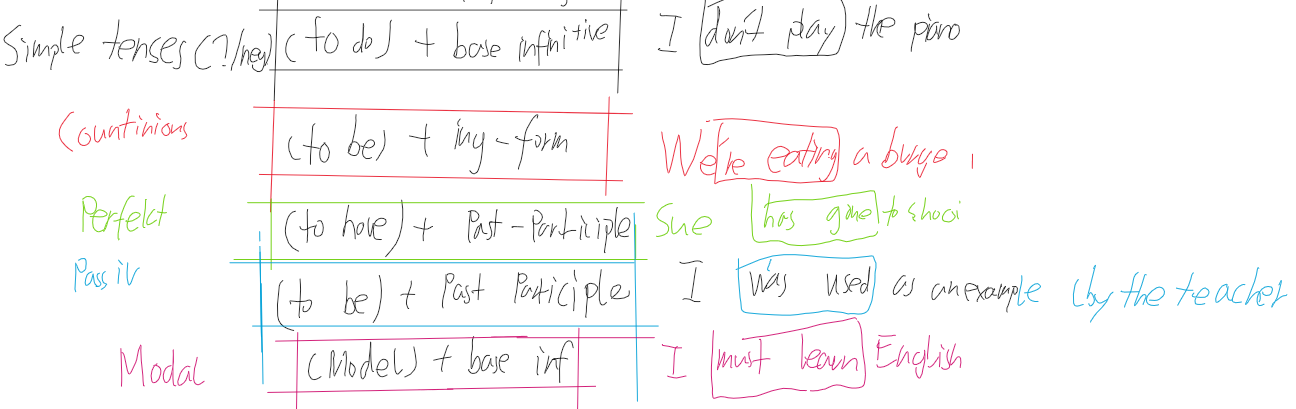 Simple tenses (?/neg) (to do) + base infinitive I don't play the piano
Countinious (to be) + ing-form We're eating a burge
Perfekt (to have) + Past-Participle Sue has gone to
Passiv (to be) + Past Participle I was used as an example (by the teacher
Modal (Model) + base inf I must learn English